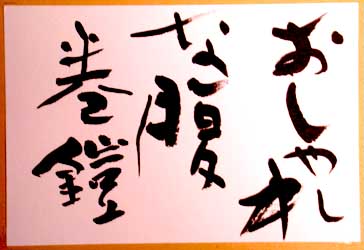 おしゃれ
な腹
巻鎧